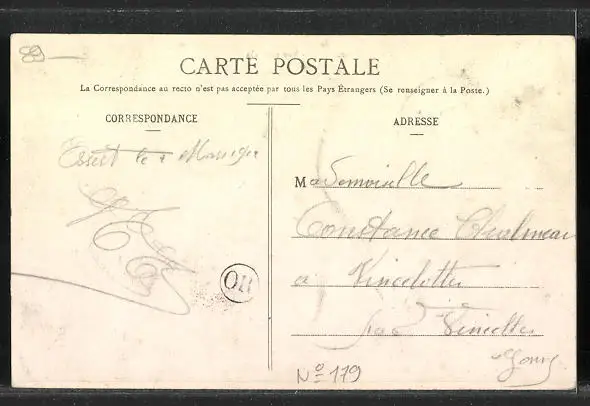 89
CARTE POSTALE
La Correspondance au recto n'est pas acceptée par tous les Pays Étrangers (Se renseigner à la Poste.)
CORRESPONDANCE
ADRESSE
le
Mademoiselle
Constance Chalmeau
a Vincelottes
par Vincelles
Yonne
OR
N° 179